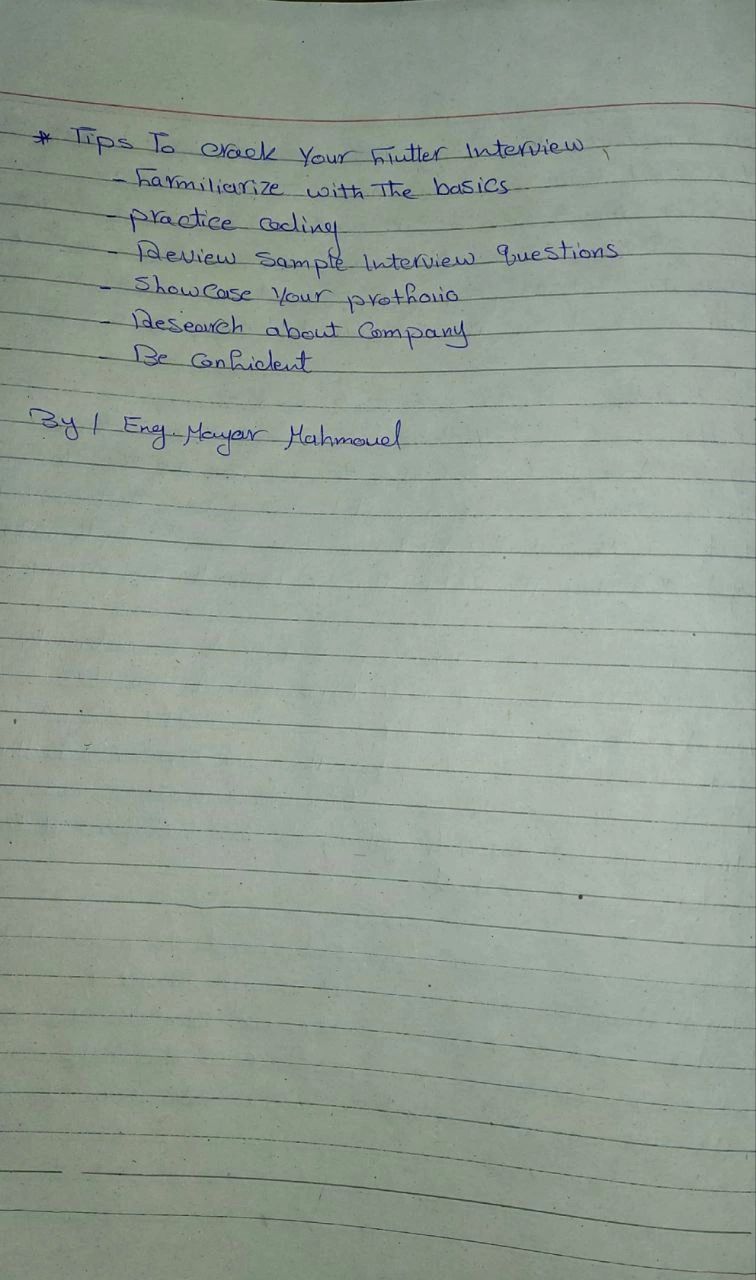 * Tips To crack Your Flutter Interview,
- Farmiliarize with The basics
- practice coding
- Review Sample Interview questions
- Showcase Your protfolio
- Research about Company
- Be Confident
By / Eng. Mayar Mahmoud